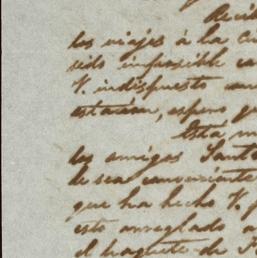 Recib
los viajes á la ci
sido imposible ca
V. indispuesto con
estacion, espero q
Esta m
los amigos Santo
de sea conveniente
que ha hecho V. p
esto arreglado a
el paquete de F